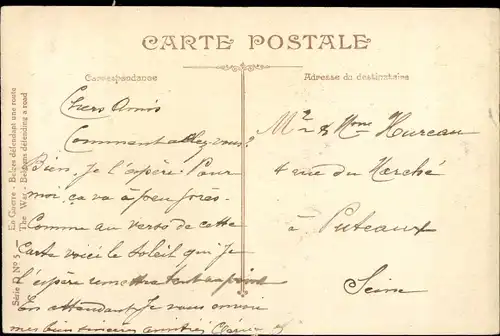 CARTE POSTALE
Correspondance
Adresse du destinataire
Série D N° 5 — En Guerre - Belges défendant une route
The War - Belgians défending a road
Chers Amis
Comment allez vous?
Bien, je l'éspère. Pour
moi, ça va à peu près.
Comme au verso de cette
Carte voici le soleil qui je
l'espère remettra tout au point
En attendant je vous envoie
mes bien sincères amitiés
Mr & Mme Hureau
4 rue du Marché
à Puteaux
Seine